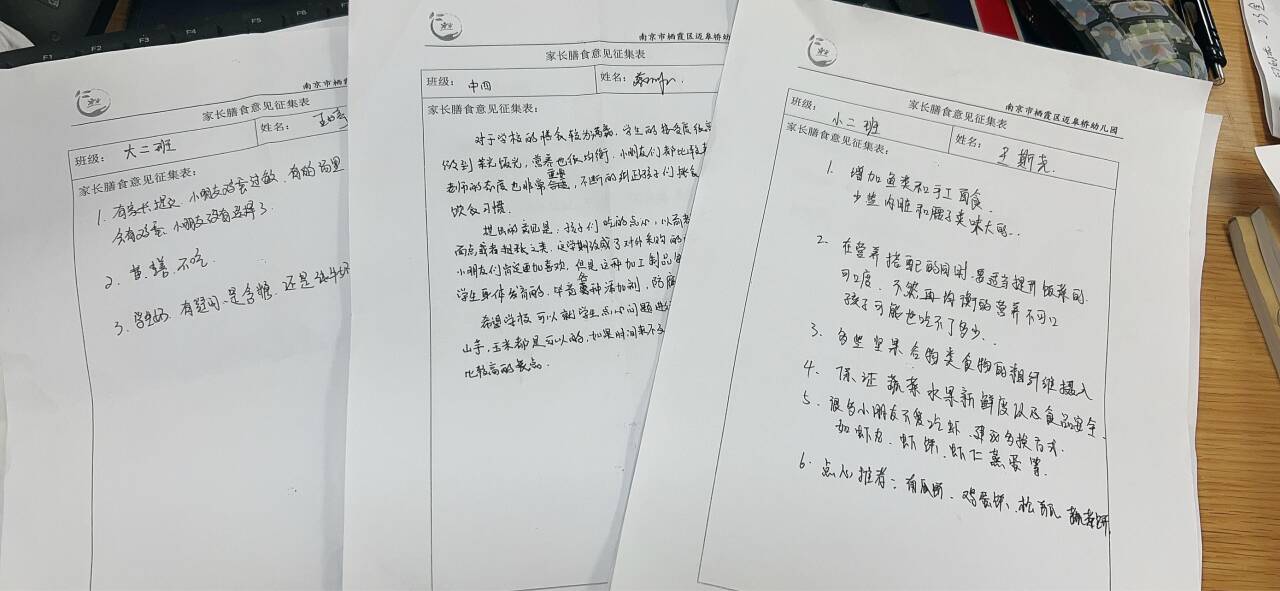 家长膳食意见征集表
班级： 大二班
姓名：
家长膳食意见征集表：
1. 有家长提义，小朋友鸡蛋过敏，有的汤里
含有鸡蛋，小朋友没有选择了
2. 黄鳝 不吃
3. 有疑问：是含糖，还是纯牛奶
南京市栖霞区迈皋桥幼
家长膳食意见征集表
班级： 中四
姓名：
家长膳食意见征集表：
对于学校的膳食较为满意，学生的接受度很
做到荤素优先，营养也很均衡，小朋友们都比较
老师的态度也非常重要合适，不断的纠正孩子们挑食
饮食习惯.
提出的意见是，孩子们吃的点心，以前都
面点或者超张之类，这学期改成了对外采购的
小朋友们肯定更加喜欢，但是这种加工制品
学生身体发育的，毕竟含各种添加剂，防腐
希望学校可以就学生点心问题进
山芋，玉米都是可以的，如果时间来不
比较高的餐点.
南京市栖霞区迈皋桥幼儿园
家长膳食意见征集表
班级： 小二班
姓名： 王斯尧.
家长膳食意见征集表：
1. 增加鱼类和手工面食.
少些内脏和腰子类味大的..
2. 在营养搭配的同时，要适当提升饭菜的
可口度. 不然再均衡的营养不可口
孩子可能也吃不了多少..
3. 多些坚果谷物类食物的粗纤维摄入
4. 保证蔬菜水果新鲜度以及食品安全.
5. 很多小朋友不爱吃虾，建议多换方式.
加虾丸、虾饼、虾仁蒸蛋等.
6. 点心推荐： 南瓜粥、鸡蛋饼、松 蔬菜饼.